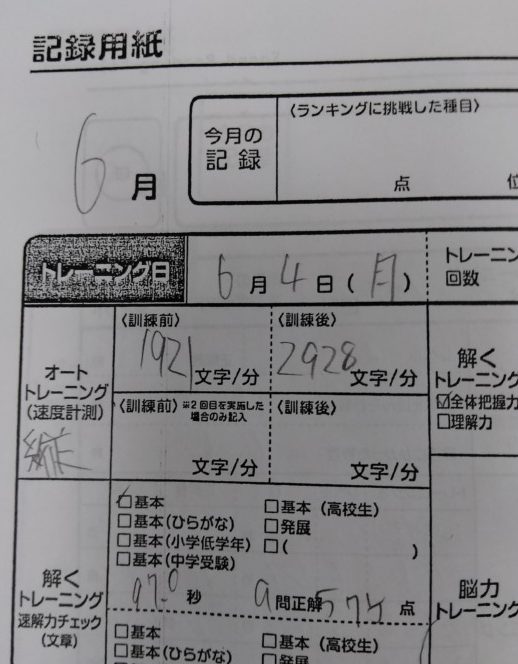 記録用紙
6月
今月の記録
〈ランキングに挑戦した種目〉
点 位
トレーニング日
6月4日(月)
トレーニング
回数
オート
トレーニング
(速度計測)
縦
〈訓練前〉
1921文字/分
〈訓練後〉
2928文字/分
〈訓練前〉※2回目を実施した場合のみ記入
文字/分
〈訓練後〉
文字/分
解く
トレーニング
☑全体把握力
□理解力
解く
トレーニング
速解力チェック
(文章)
□基本
□基本(ひらがな)
□基本(小学低学年)
□基本(中学受験)
□基本(高校生)
□発展
□( )
秒 9問正解 点
脳力
トレーニング
□基本
□基本(ひらがな)
□基本(高校生)
□発展